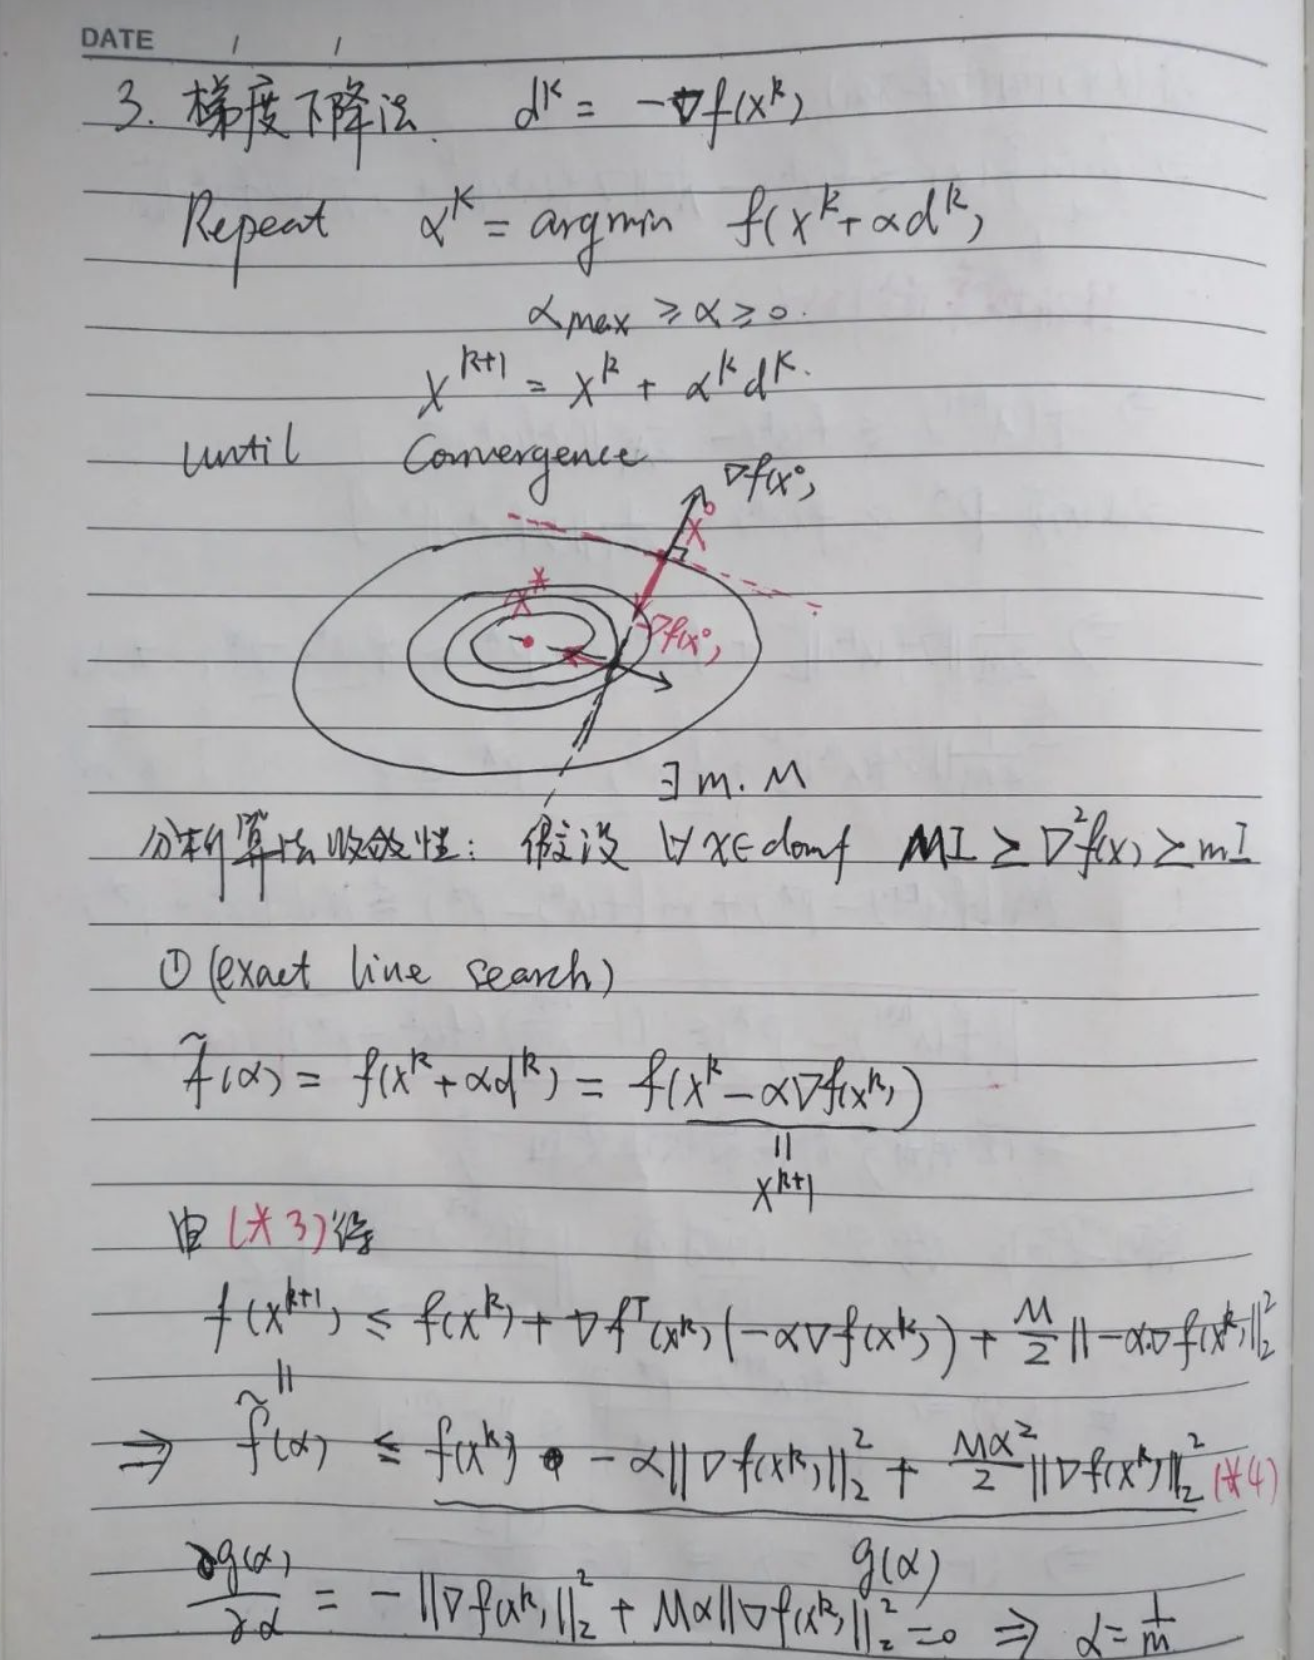 DATE / /
3. 梯度下降法. dᵏ = -∇f(xᵏ)
Repeat αᵏ = argmin f(xᵏ+αdᵏ)
αmax ≥ α ≥ 0.
xᵏ⁺¹ = xᵏ + αᵏdᵏ.
until Convergence
∇f(x⁰)
x⁰
x*
-∇f(x⁰)
∃ m. M
分析算法收敛性: 假设 ∀x∈domf MI ≥ ∇²f(x) ≥ mI
① (exact line search)
f̃(α) = f(xᵏ+αdᵏ) = f(xᵏ-α∇f(xᵏ))
||
xᵏ⁺¹
由 (*3) 得
f(xᵏ⁺¹) ≤ f(xᵏ) + ∇fᵀ(xᵏ)(-α∇f(xᵏ)) + M/2 ||-α∇f(xᵏ)||₂²
||
⇒ f̃(α) ≤ f(xᵏ) - α||∇f(xᵏ)||₂² + Mα²/2 ||∇f(xᵏ)||₂² (*4)
g(α)
∂g(α)/∂α = -||∇f(xᵏ)||₂² + Mα||∇f(xᵏ)||₂² = 0 ⇒ α = 1/m